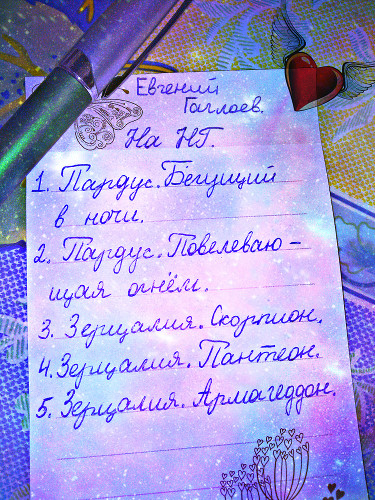 Евгений
Гаглоев.
На НГ.
1. Пардус. Бегущий
в ночи.
2. Пардус. Повелеваю-
щая огнём.
3. Зерцалия. Скорпион.
4. Зерцалия. Пантеон.
5. Зерцалия. Армагеддон.